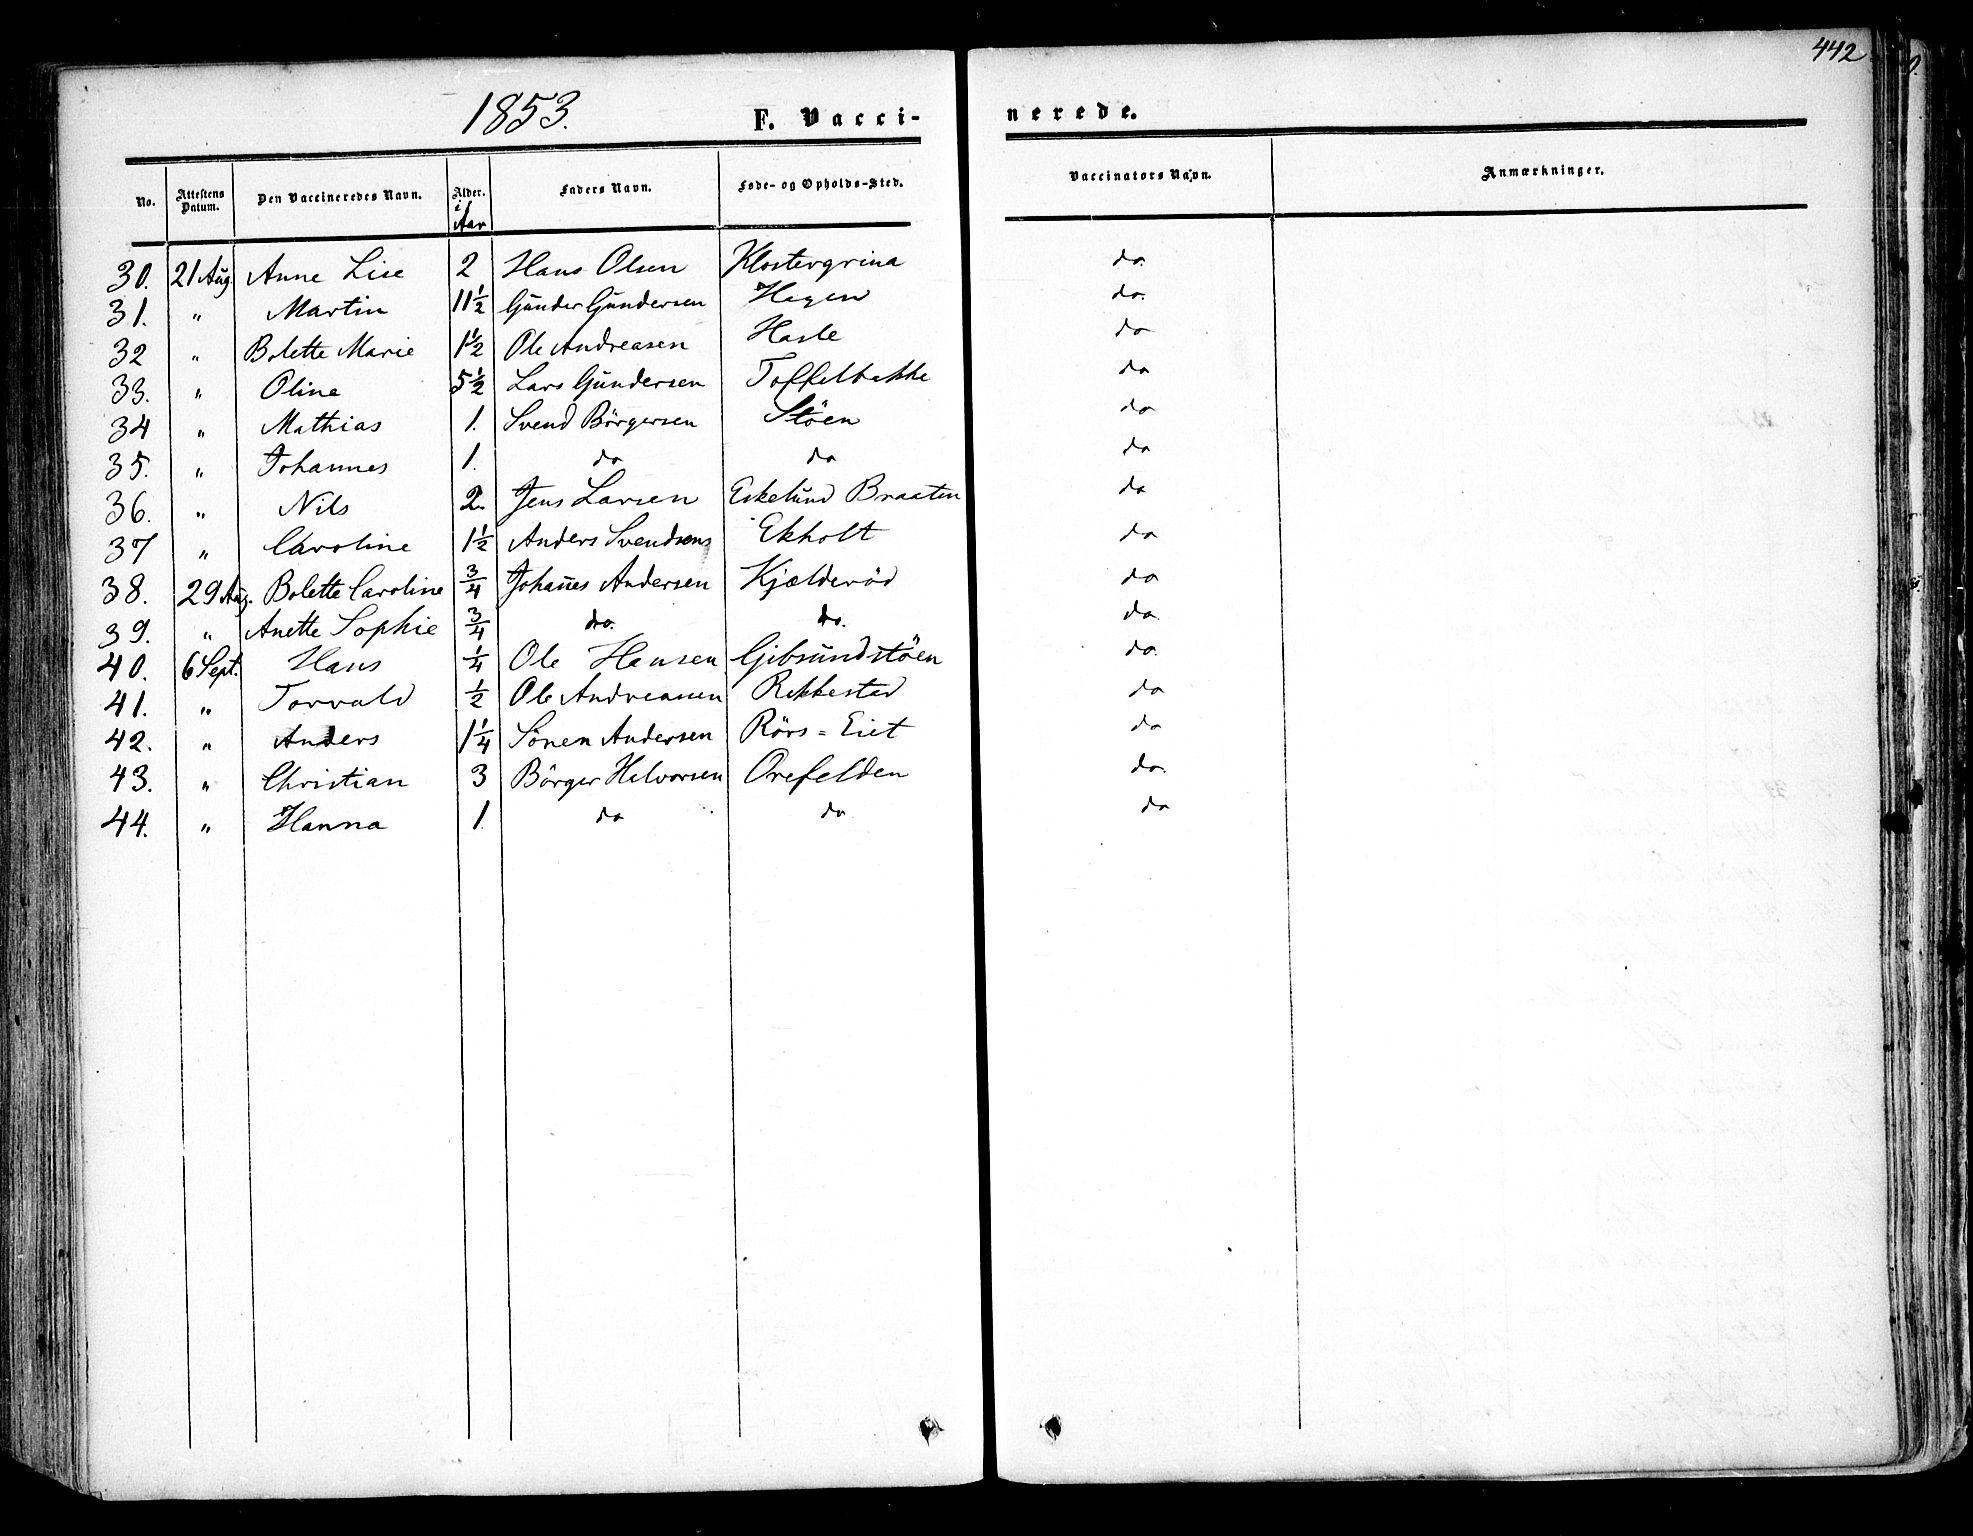 442
1853. F. Vacci- nerede.
No. Attestens Datum. Den Vaccineredes Navn. Alder. i Aar Faders Navn. Føde- og Opholds-Sted. Vaccinators Navn. Anmærkninger.
30. 21 Aug. Anne Lise 2 Hans Olsen Klostergrina do.
31. " Martin 11½ Gunder Gundersen Hagen do.
32 " Bolette Marie 1½ Ole Andreasen Hasle do
33. " Oline 5½ Lars Gundersen Toffelbakke do
34 " Mathias 1. Svend Börgersen Stöen do
35. " Johannes 1. do do do
36. " Nils 2. Jens Larsen Eskelund Braaten do
37 " Caroline 1½ Anders Svendsens Ekholt do
38. 29 Aug. Bolette Caroline ¾ Johañes Andersen Kjælderöd do
39. " Anette Sophie ¾ do. do. do.
40. 6 Sept. Hans ¼ Ole Hansen Gibsundstöen do.
41. " Torvald ½ Ole Andreasen Rekkestad do
42. " Anders 1¼ Sören Andersen Rörs = Eiet do
43. " Christian 3 Börger Halvorsen Orefelden do.
44. " Hanna 1. do do do